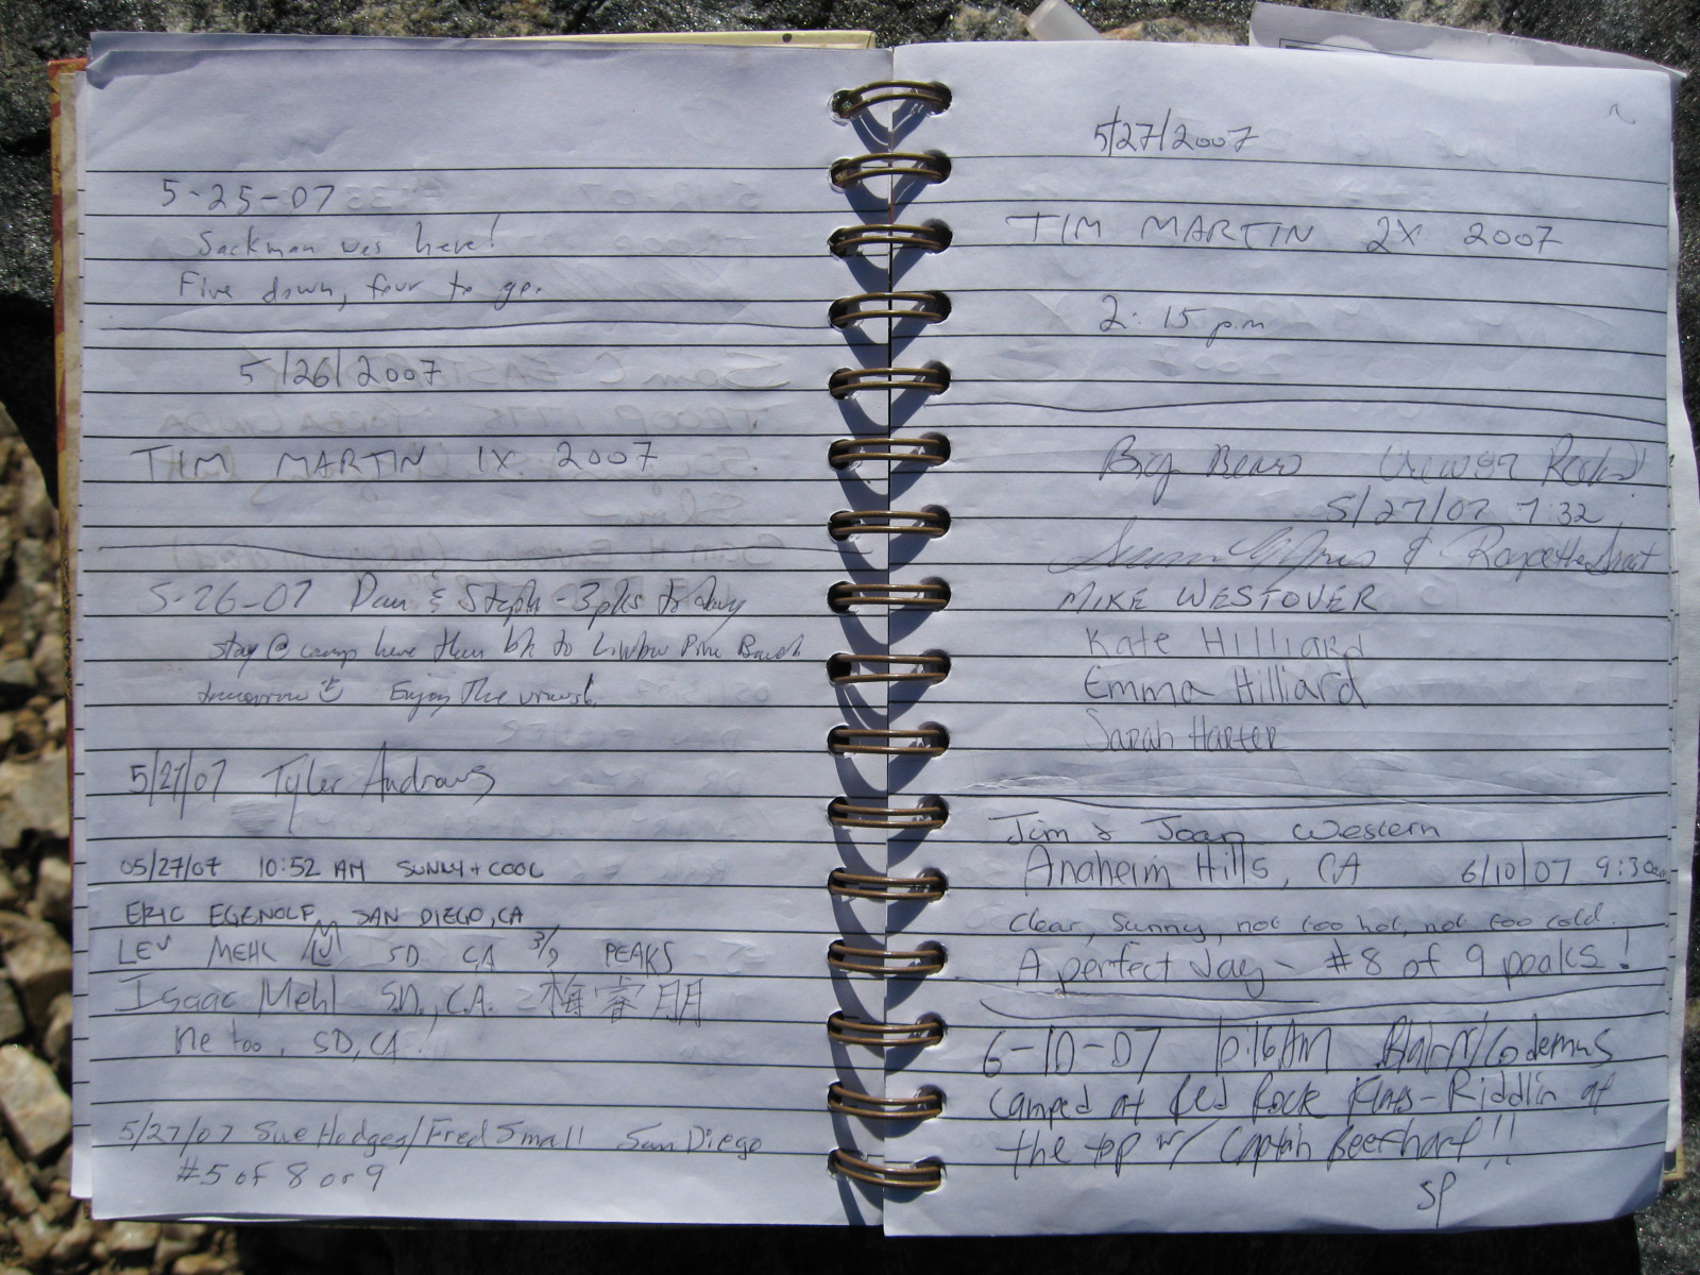 5-25-07
Sackman was here!
Five down, four to go.
5/26/2007
TIM MARTIN 1X 2007
5-26-07 Dan & Steph - 3 pks today
stay @ camp here then bk to Limber Pine Bench
tomorrow Enjoy The views!
5/27/07 Tyler Andrews
05/27/07 10:52 AM SUNNY + COOL
ERIC EGENOLF SAN DIEGO, CA
LEV MEHL SD CA 3/9 PEAKS
Isaac Mehl SD, CA. 梅睿朋
Me too, SD, CA!
5/27/07 Sue Hodges/Fred Small San Diego
#5 of 8 or 9
5/27/2007
TIM MARTIN 2X 2007
2:15 pm
Big Bear
5/27/07 7:32
&
MIKE WESTOVER
Kate Hilliard
Emma Hilliard
Sarah Harter
Jim & Joan Western
Anaheim Hills, CA 6/10/07 9:30am
Clear, Sunny, not too hot, not too cold.
A perfect day - #8 of 9 peaks!
6-10-07 10:16AM Blair N/Codemus
Camped at Red Rock Flats - Riddlin at
the top w/ Captain Beefhart!!
SP